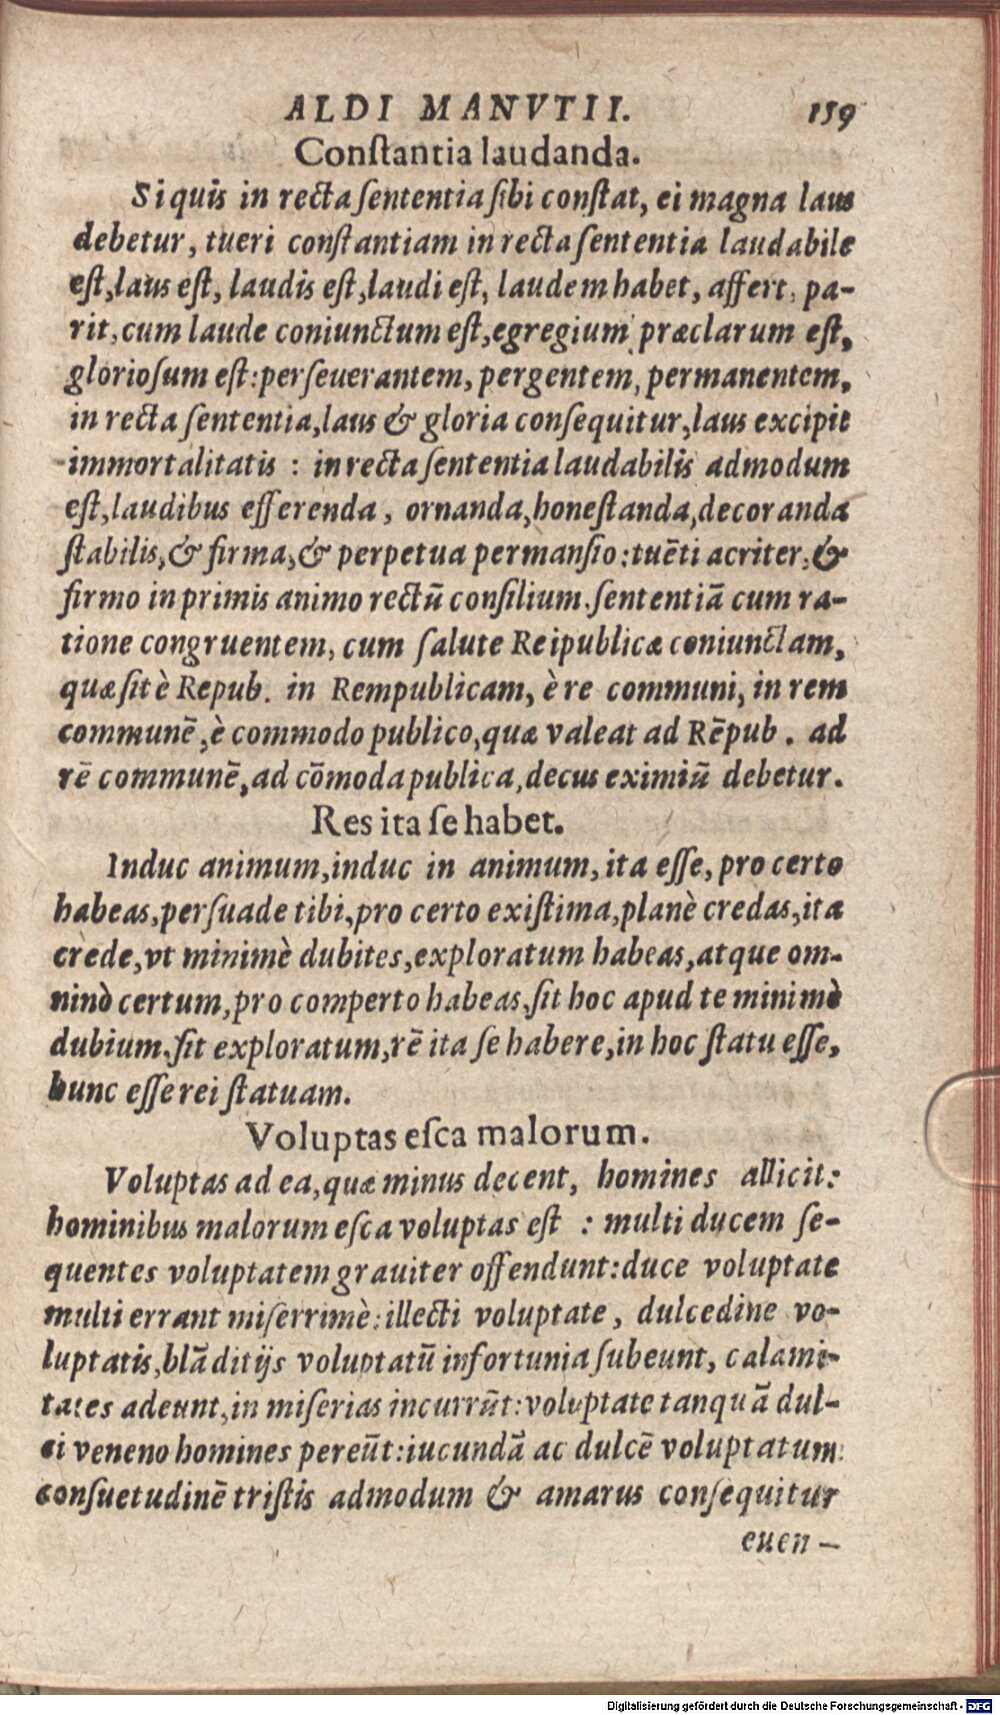 ALDI MANVTII. 159
Conſtantia laudanda.
Si quis in recta ſententia ſibi conſtat, ei magna laus
debetur, tueri conſtantiam in recta ſententia laudabile
eſt, laus eſt, laudis eſt, laudi eſt, laudem habet, affert, pa-
rit, cum laude coniunctum eſt, egregium præclarum eſt,
glorioſum eſt: perſeuerantem, pergentem, permanentem,
in recta ſententia, laus & gloria conſequitur, laus excipit
immortalitatis : in recta ſententia laudabilis admodum
eſt, laudibus efferenda, ornanda, honeſtanda, decoranda
ſtabilis, & firma, & perpetua permanſio: tuēti acriter, &
firmo in primis animo rectū conſilium, ſententiā cum ra-
tione congruentem, cum ſalute Reipublicæ coniunctam,
quæ ſit è Repub. in Rempublicam, è re communi, in rem
communē, è commodo publico, quæ valeat ad Rēpub. ad
rē communē, ad cōmoda publica, decus eximiū debetur.
Res ita ſe habet.
Induc animum, induc in animum, ita eſſe, pro certo
habeas, perſuade tibi, pro certo exiſtima, planè credas, ita
crede, vt minimè dubites, exploratum habeas, atque om-
ninò certum, pro comperto habeas, ſit hoc apud te minimè
dubium, ſit exploratum, rē ita ſe habere, in hoc ſtatu eſſe,
hunc eſſe rei ſtatuam.
Voluptas eſca malorum.
Voluptas ad ea, quæ minus decent, homines allicit:
hominibus malorum eſca voluptas eſt : multi ducem ſe-
quentes voluptatem grauiter offendunt: duce voluptate
multi errant miſerrimè: illecti voluptate, dulcedine vo-
luptatis, blāditijs voluptatū infortunia ſubeunt, calami-
tates adeunt, in miſerias incurrūt: voluptate tanquā dul-
ci veneno homines pereūt: iucundā ac dulcē voluptatum
conſuetudinē triſtis admodum & amarus conſequitur
euen-
Digitalisierung gefördert durch die Deutsche Forschungsgemeinschaft - DFG